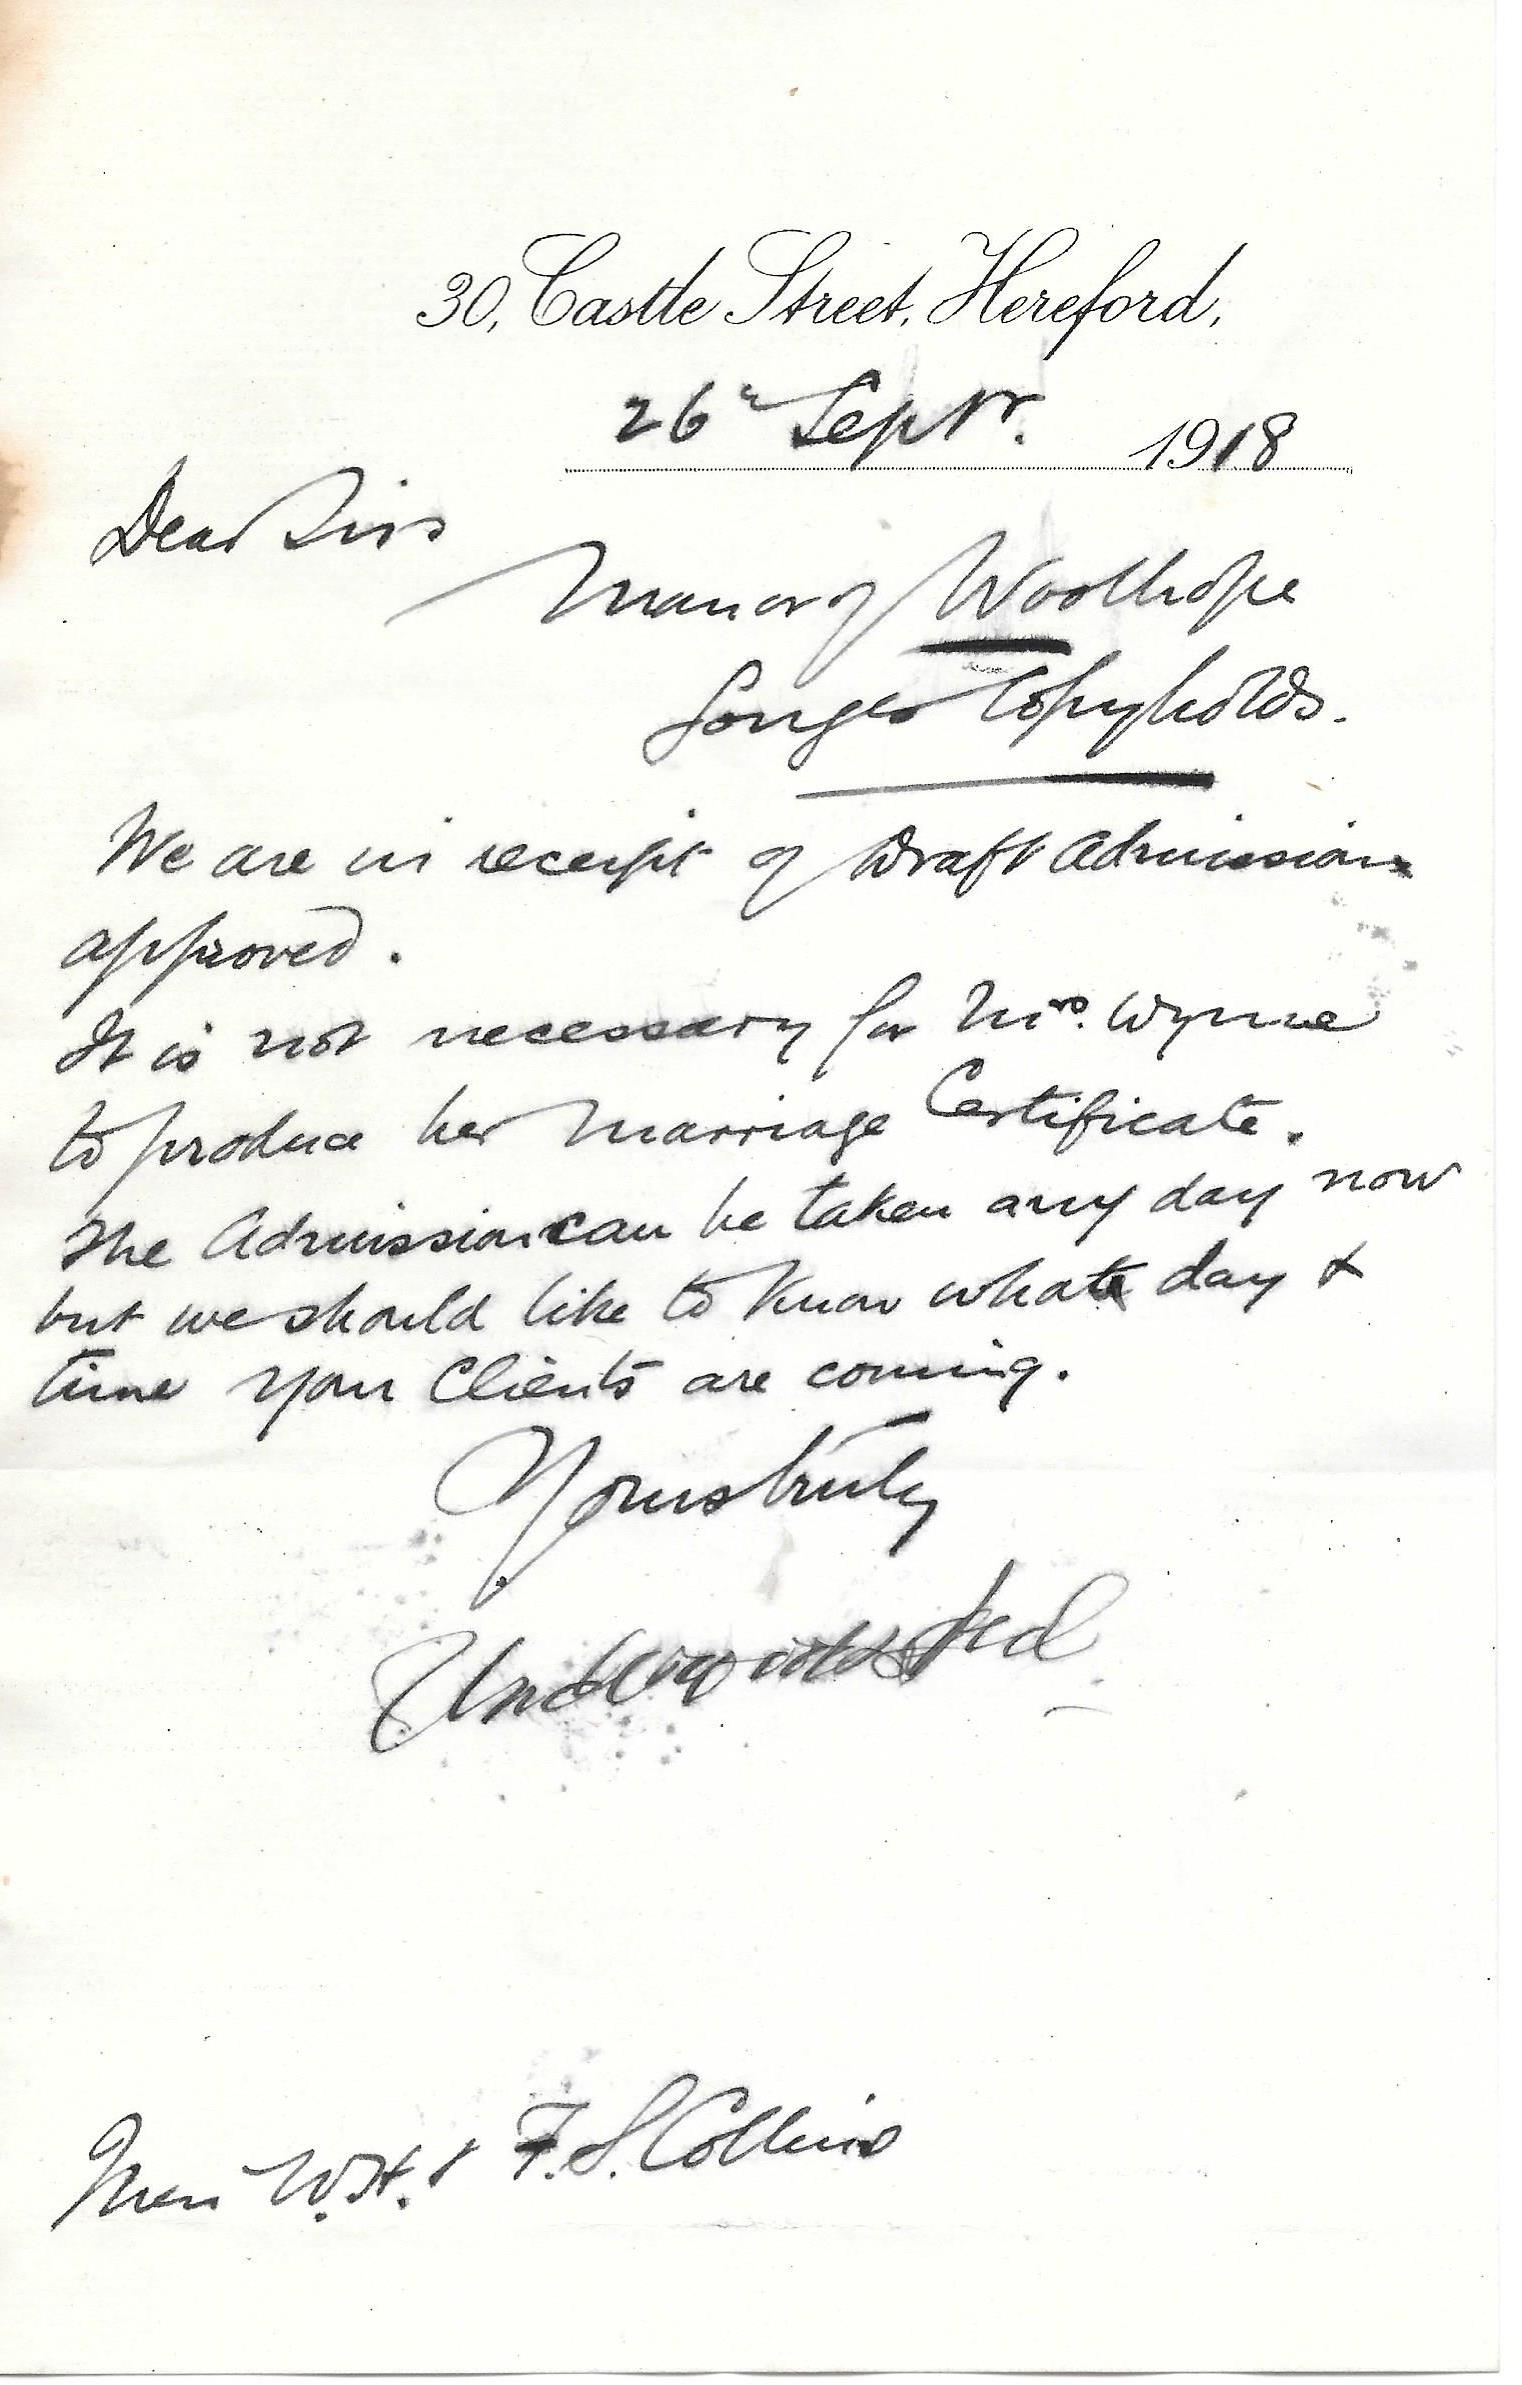 30, Castle Street, Hereford,
26th Septr. 1918
Dear Sirs
Manor of Woolhope
Copyholds.
We are in receipt of Draft Admissions
approved.
It is not necessary for Mrs. Wynne
to produce her Marriage Certificate.
The Admission can be taken any day now
but we should like to know what day &
time your Clients are coming.
Yours truly
Underwood
W.H. & F.S. Collins